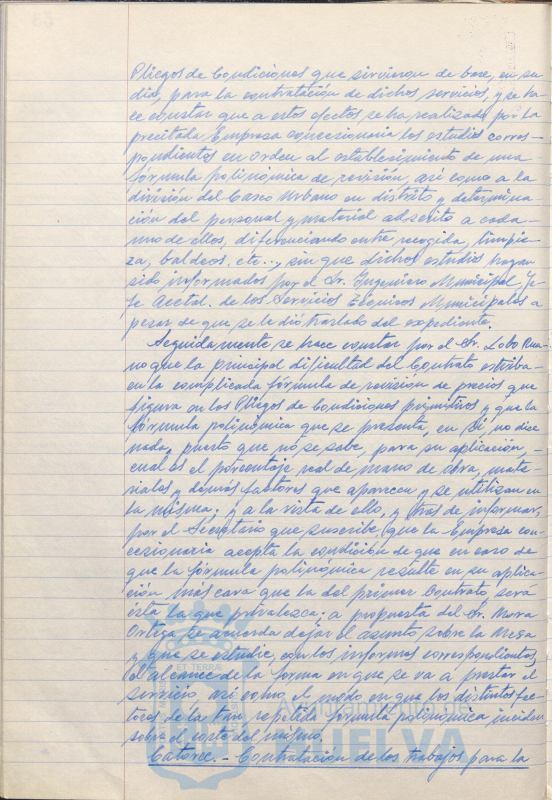 Pliegos de Condiciones que sirvieron de base, en su
dia, para la contratación de dichos servicios, y se ha
ce constar que a estos efectos se ha realizado por la
precitada Empresa concesionaria los estudios corres-
pondientes en orden al establecimiento de una
fórmula polinómica de revisión, asi como a la
división del Casco Urbano en distrito y determina-
ción del personal y material adscrito a cada
uno de ellos, diferenciando entre recogida, limpie-
za, baldeos, etc..., sin que dichos estudios hayan
sido informados por el Sr. Ingeniero Municipal Je-
fe Acctal. de los Servicios Técnicos Municipales a
pesar de que se le dió traslado del expediente.
Seguidamente se hace constar por el Sr. Lobo Rua-
no que la principal dificultad del Contrato estriba-
en la complicada fórmula de revisión de precios que
figura en los Pliegos de Condiciones primitivos y que la
fórmula polinómica que se presenta, en sí, no dice
nada, puesto que no se sabe, para su aplicación,-
cual es el porcentaje real de mano de obra, mate-
riales y demás factores que aparecen y se utilizan en
la misma; y a la vista de ello, y tras de informar,
por el Secretario que suscribe, que la Empresa con-
cesionaria acepta la condición de que en caso de
que la fórmula polinómica resulte en su aplica-
ción más cara que la del primer Contrato será
ésta la que prevalezca; a propuesta del Sr. Mora
Ortiga se acuerda dejar el asunto sobre la Mesa
y que se estudie, con los informes correspondientes,
el alcance de la forma en que se va a prestar el
servicio asi como el modo en que los distintos fac-
tores de la tan repetida fórmula polinómica inciden
sobre el costo del mismo.
Catorce.- Contratación de los trabajos para la
Ayuntamiento de
HUELVA